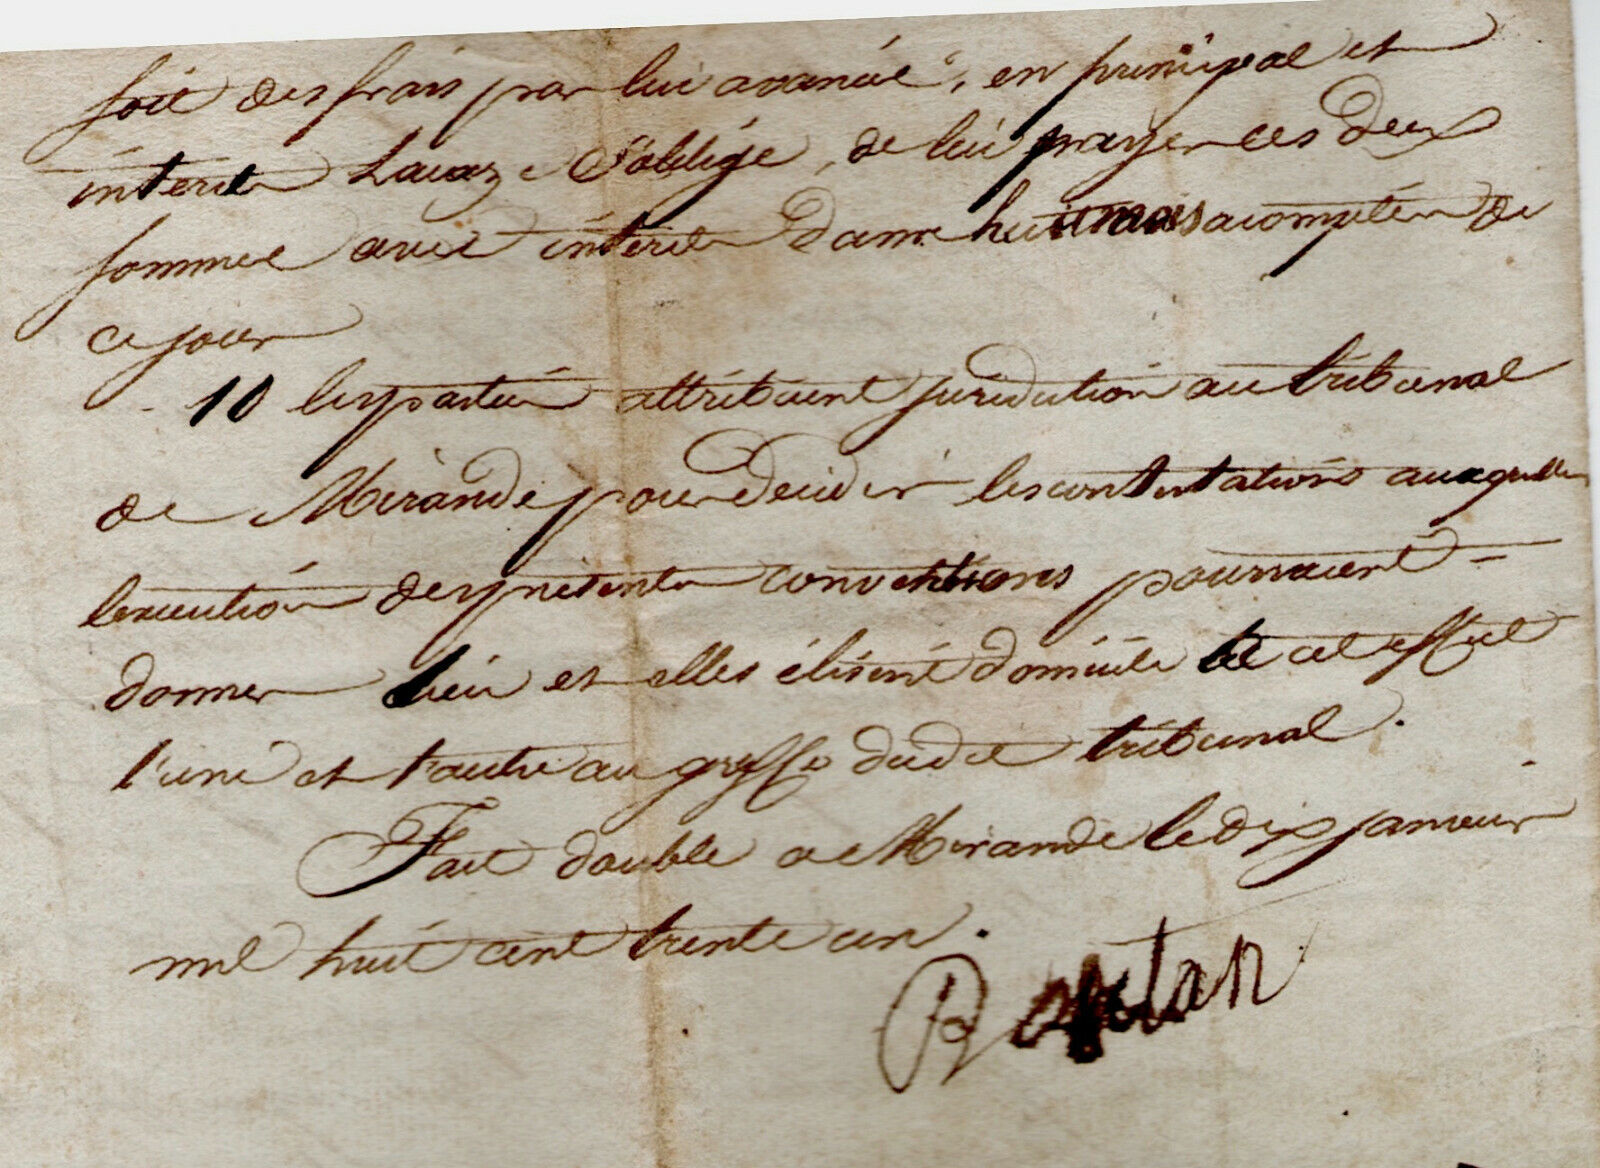 soit des frais par lui avancés, en principal et
intérêts Lacaz s'oblige, de lui payer ces deux
sommes avec intérêts dans huit mois a compter de
ce jour
10 les parties attribuent juridiction au tribunal
de Mirande pour décider les contestations auxquelles
l'execution des présentes conventions pourraient
donner lieu et elles élisent domicile a cet effet
l'une et l'autre au greffe dudit tribunal.
Fait double a Mirande le dix janvier
mil huit cent trente un.